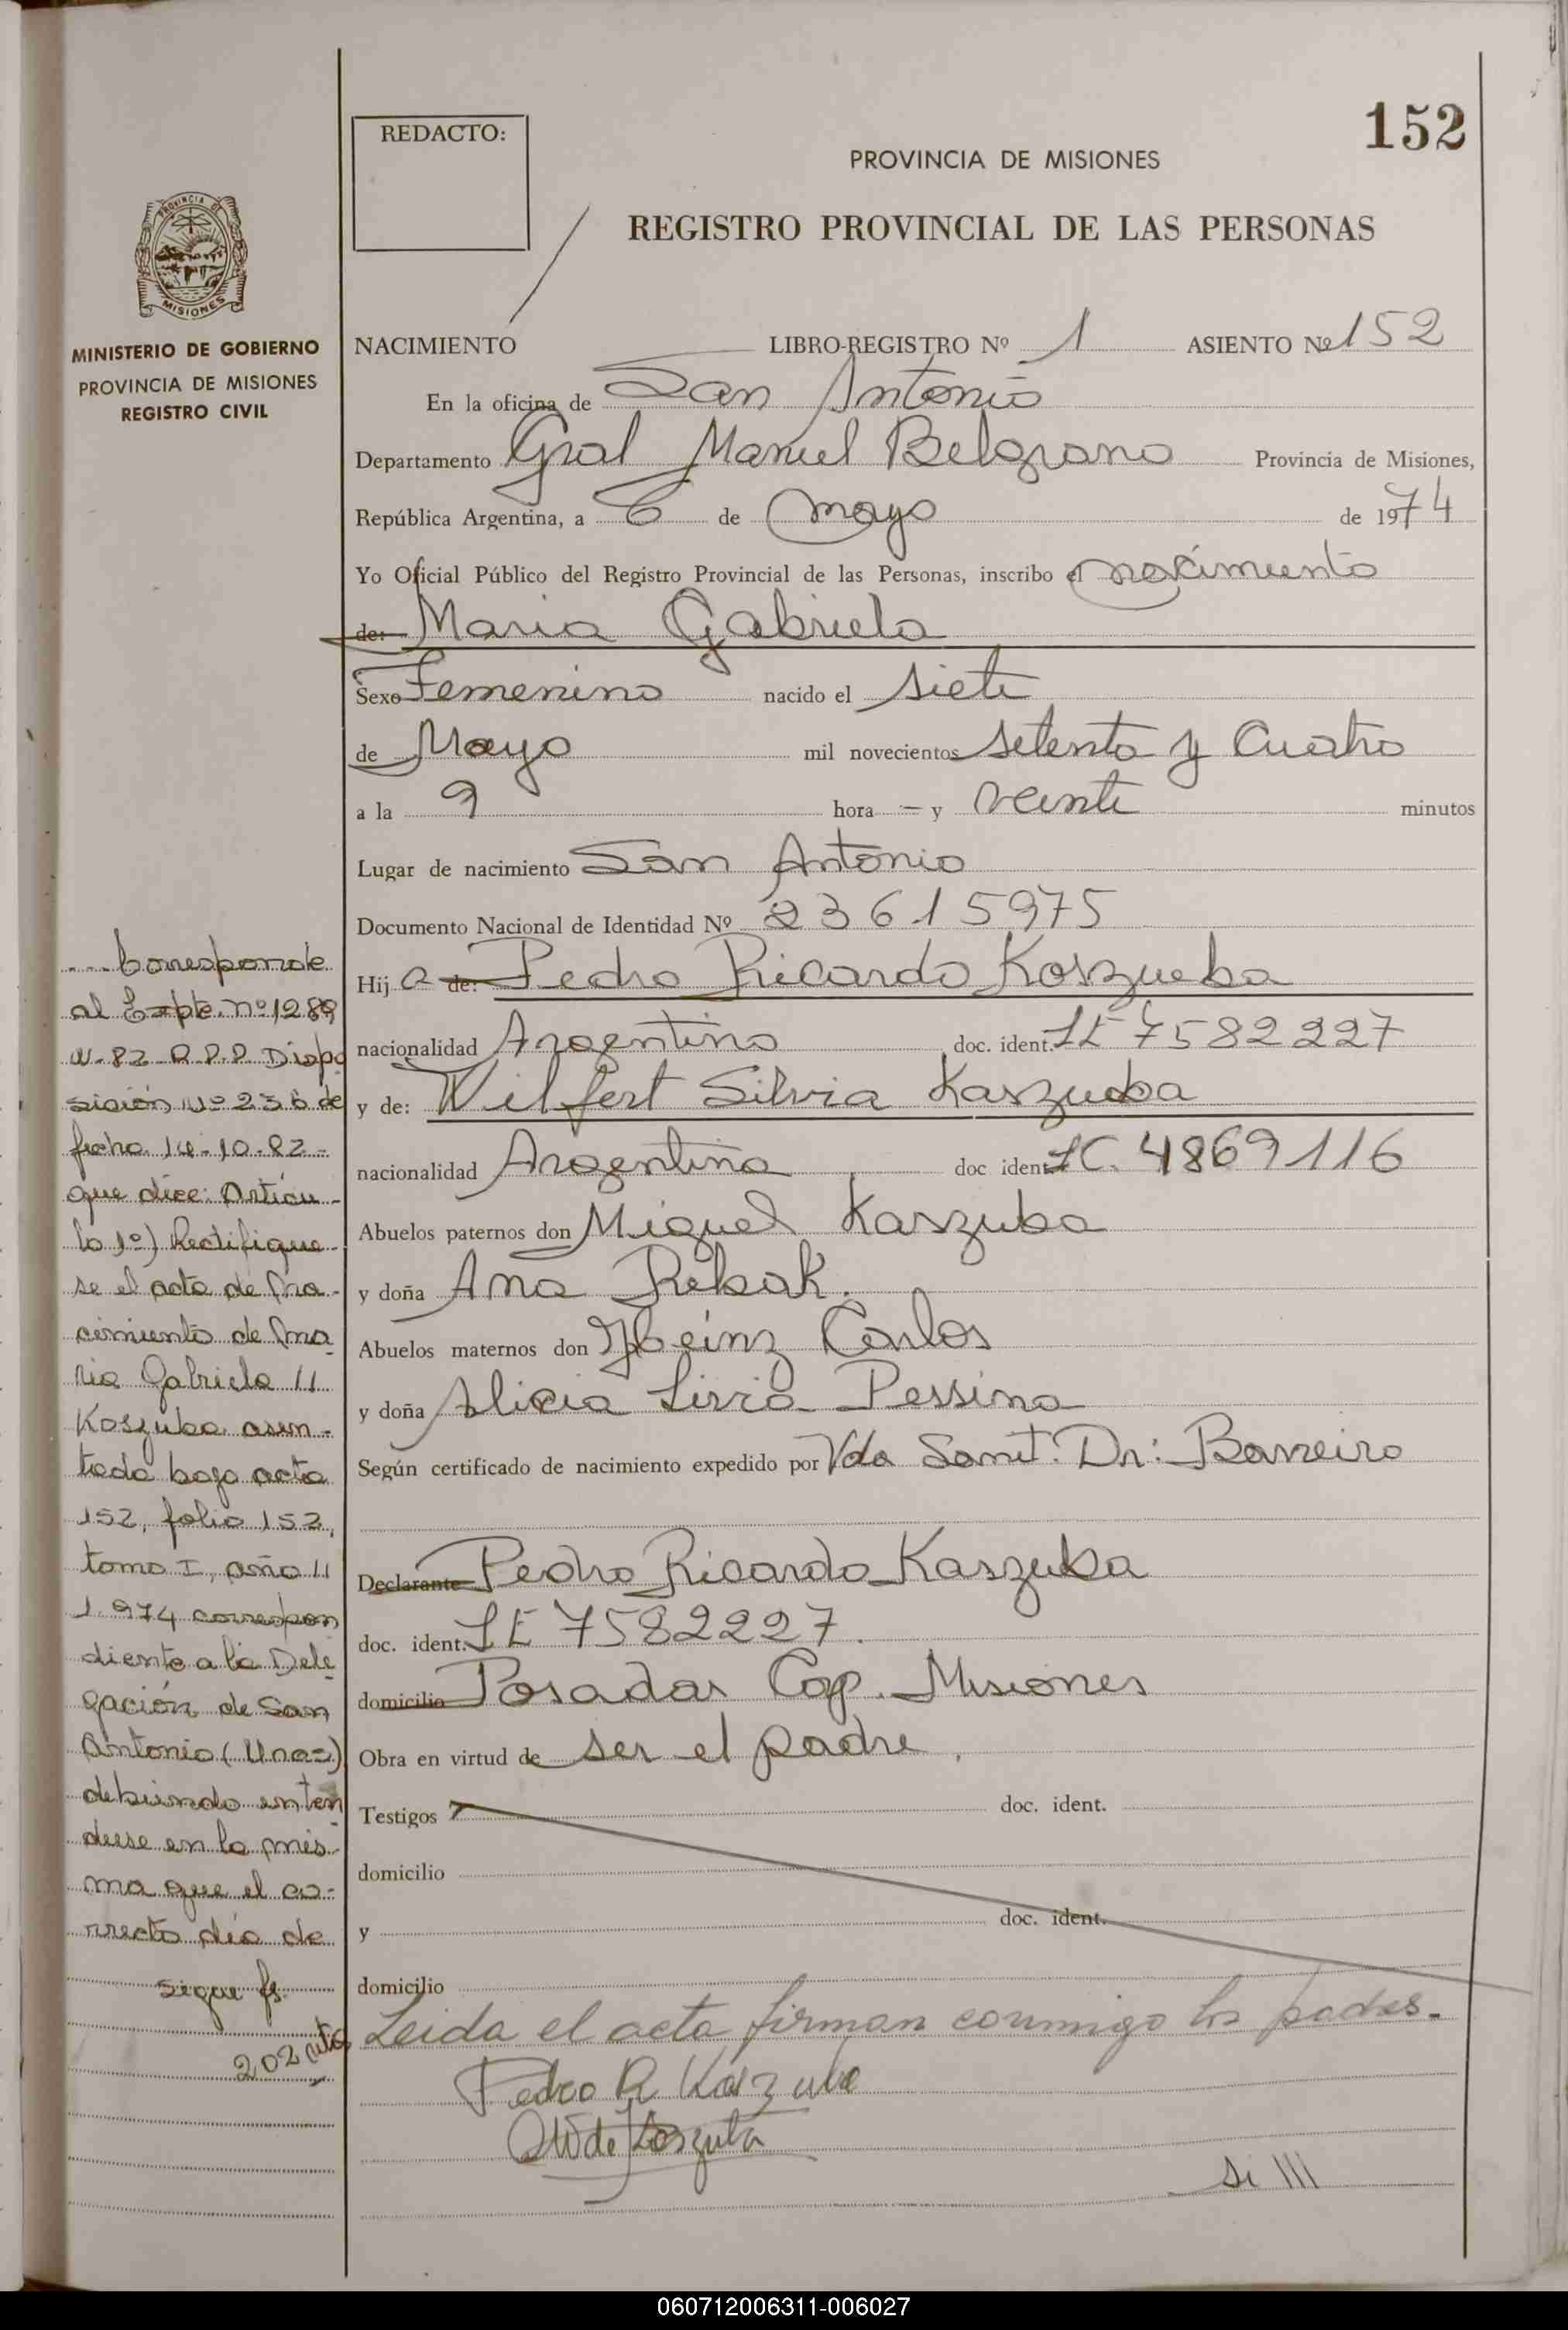 152
REDACTO:
PROVINCIA DE MISIONES
REGISTRO PROVINCIAL DE LAS PERSONAS
PROVINCIA DE
MISIONES
MINISTERIO DE GOBIERNO
PROVINCIA DE MISIONES
REGISTRO CIVIL
NACIMIENTO LIBRO-REGISTRO Nº 1 ASIENTO Nº 152
En la oficina de San Antonio
Departamento Gral Manuel Belgrano Provincia de Misiones,
República Argentina, a de mayo de 1974
Yo Oficial Público del Registro Provincial de las Personas, inscribo el nacimiento
de: Maria Gabriela
Sexo Femenino nacido el siete
de Mayo mil novecientos setenta y Cuatro
a la 9 hora = y veinte minutos
Lugar de nacimiento San Antonio
Documento Nacional de Identidad Nº 23615975
Hij a de: Pedro Ricardo Koszueba
nacionalidad Argentino doc. ident. LE 7582227
y de: Wilfert Silvia Kaszuba
nacionalidad Argentina doc ident LC. 4869116
Abuelos paternos don Miguel Kaszuba
y doña Ana Rebak.
Abuelos maternos don Carlos
y doña Alicia Livia Pessina
Según certificado de nacimiento expedido por Vda Sanit. Dr: Barreiro
Declarante Pedro Ricardo Kaszuba
doc. ident. LE 7582227.
domicilio Posadas Cap. Misiones
Obra en virtud de ser el padre.
Testigos doc. ident.
domicilio
y doc. ident.
domicilio
Leida el acta firman conmigo los padres.
Pedro R Kaszuba
de Koszuba
... Corresponde
al Expte. nº 1289
Dispo
sición Nº 236 de
fecha 14-10-82-
que dice: Artícu-
lo 1º) Rectifique-
se el acta de na-
cimiento de Ma
ria Gabriela //
Koszuba asen-
tada bajo acta
152, folio 152,
tomo I, año //
1.974 correspon
diente a la Dele
gación de San
Antonio (Unas)
debiendo enten
derse en la mis-
ma que el co-
rrecto día de
sigue fs.
202
060712006311-006027